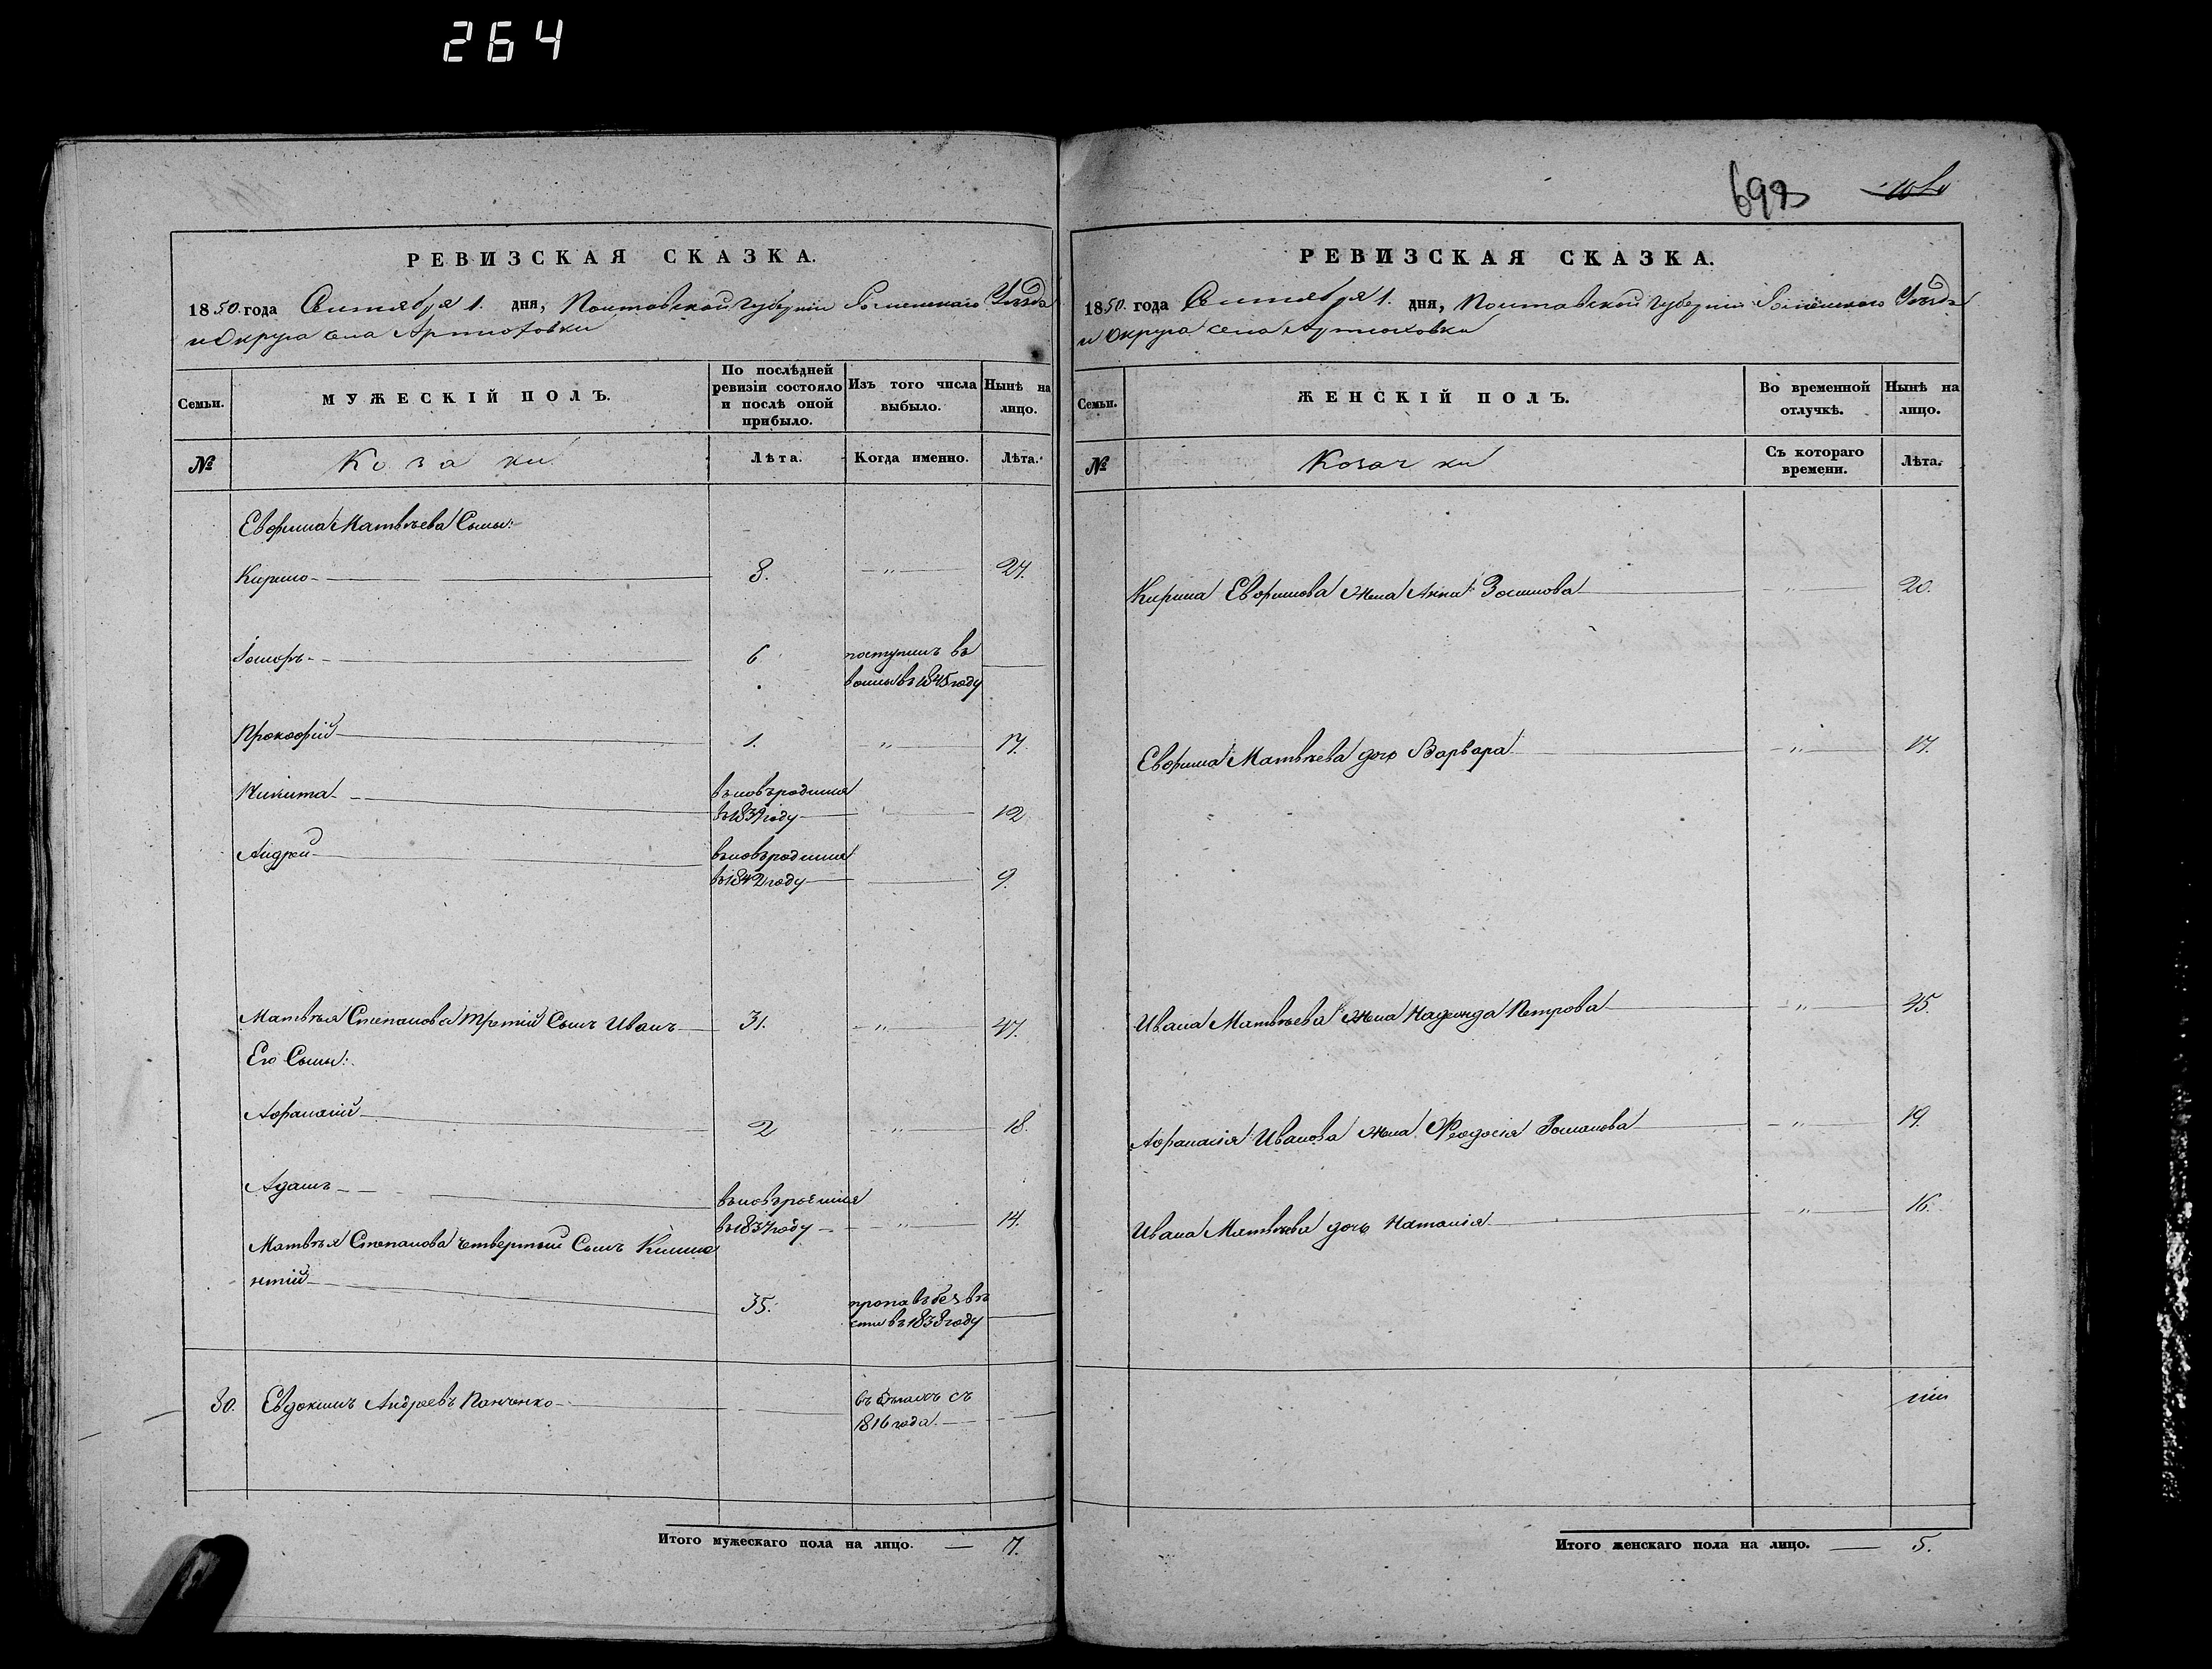 264
698
РЕВИЗСКАЯ СКАЗКА.
1850. года Сентября 1. дня, Полтавской Губернии Роменскаго Уѣзда
и Округа села Артюховки
Семьи.
МУЖЕСКІЙ ПОЛЪ.
По послѣдней ревизіи состояло и послѣ оной прибыло.
Изъ того числа выбыло.
Нынѣ на лицо.
№
Козаки
Лѣта.
Когда именно.
Лѣта.
Евфима Матвѣева Сыны:
Кирило 8. „ 24.
Іосифъ 6 поступилъ въ
въ 1845 году
Прокофій 1. „ 17.
Никита вновьродился
въ 1839 году 12
Андрей вновьродился
въ 1842 году 9.
Матвѣя Степанова третій Сынъ Иванъ 31. „ 47.
Его Сыны:
Афанасій 2 „ 18
Адамъ
въ 1837 году „ 14.
Матвѣя Степанова четвертый Сынъ
нтій 35. пропавъ безъ вѣ
сти въ 1838 году
30. Евдокимъ Андреевъ Панченко въ съ
1816 года.
Итого мужескаго пола на лицо. — 7.
РЕВИЗСКАЯ СКАЗКА.
1850. года Сентября 1. дня, Полтавской Губернии Роменскаго Уѣзда
и Округа села Артюховки
Семьи.
ЖЕНСКІЙ ПОЛЪ.
Во временной отлучкѣ.
Нынѣ на лицо.
№
Козачки
Съ котораго времени.
Лѣта.
Кирила Евфимова жена Анна „ 20.
Евфима Матвѣева дочь Варвара „ 17.
Ивана Матвѣева жена Надежда Петрова „ 45.
Афанасія Иванова жена Феодосія Романова „ 19.
Ивана Матвѣева дочь Наталія „ 16.
Итого женскаго пола на лицо. — 5.